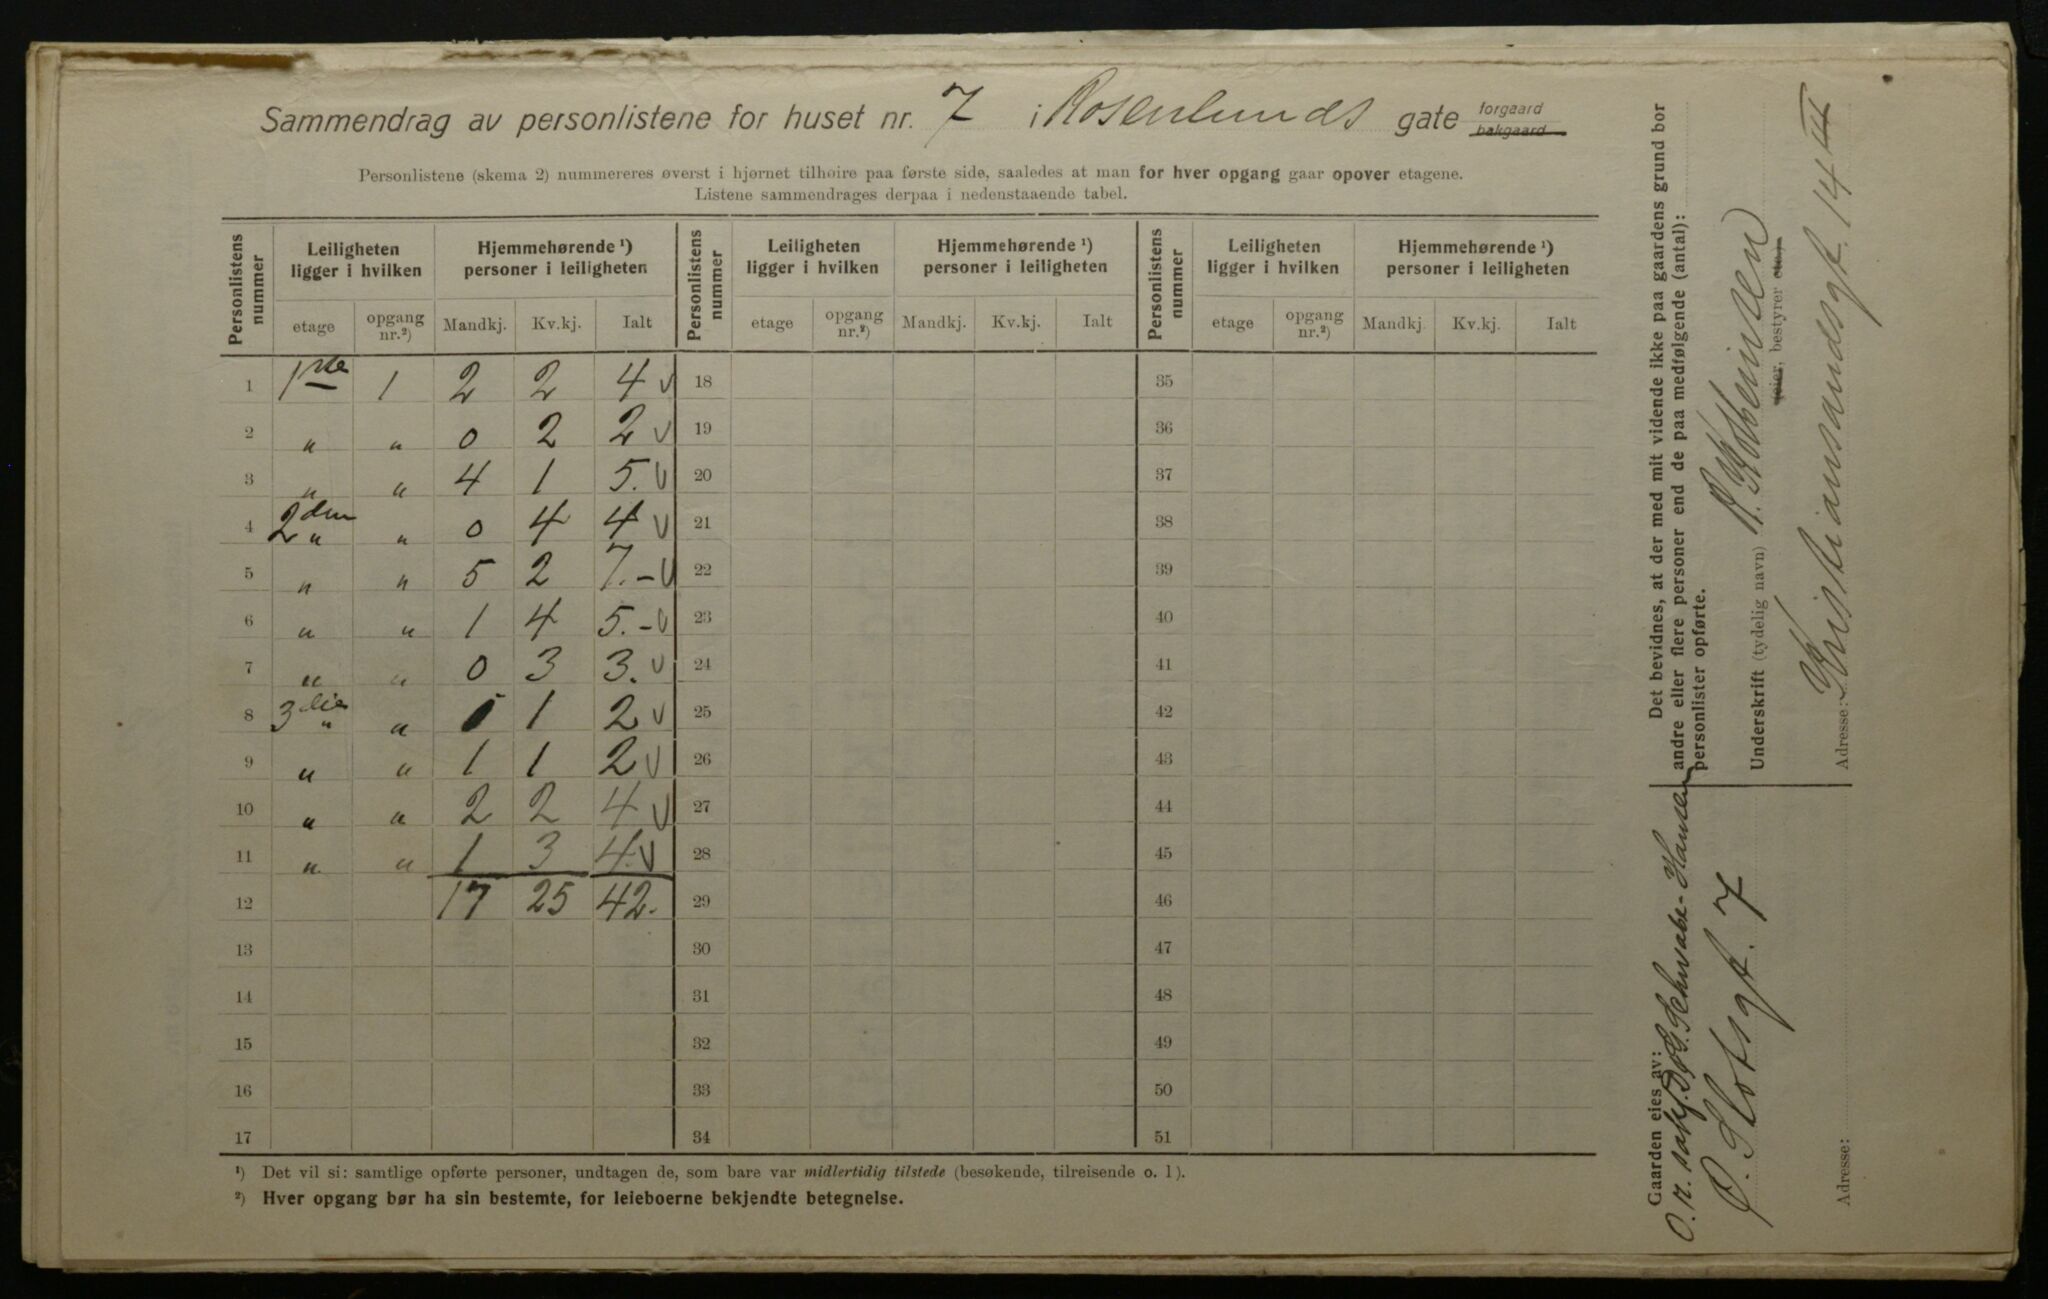 Sammendrag av personlistene for huset nr. 7 i Rosenlunds gate forgaard bakgaard
Personlistene (skema 2) nummereres øverst i hjørnet tilhøire paa første side, saaledes at man for hver opgang gaar opover etagene.
Listene sammendrages derpaa i nedenstaaende tabel.
Personlistens nummer | Leiligheten ligger i hvilken | Hjemmehørende ¹) personer i leiligheten | Personlistens nummer | Leiligheten ligger i hvilken | Hjemmehørende ¹) personer i leiligheten | Personlistens nummer | Leiligheten ligger i hvilken | Hjemmehørende ¹) personer i leiligheten
etage | opgang nr.²) | Mandkj. | Kv.kj. | Ialt | etage | opgang nr.²) | Mandkj. | Kv.kj. | Ialt | etage | opgang nr.²) | Mandkj. | Kv.kj. | Ialt
1 | 1ste | 1 | 2 | 2 | 4 v | 18 | 35
2 | " | " | 0 | 2 | 2 v | 19 | 36
3 | " | " | 4 | 1 | 5. v | 20 | 37
4 | 2den " | " | 0 | 4 | 4 v | 21 | 38
5 | " | " | 5 | 2 | 7. – v | 22 | 39
6 | " | " | 1 | 4 | 5. – v | 23 | 40
7 | " | " | 0 | 3 | 3. v | 24 | 41
8 | 3die " | " | 1 | 1 | 2 v | 25 | 42
9 | " | " | 1 | 1 | 2 v | 26 | 43
10 | " | " | 2 | 2 | 4 v | 27 | 44
11 | " | " | 1 | 3 | 4. v | 28 | 45
12 | 17 | 25 | 42. | 29 | 46
13 | 30 | 47
14 | 31 | 48
15 | 32 | 49
16 | 33 | 50
17 | 34 | 51
¹) Det vil si: samtlige opførte personer, undtagen de, som bare var midlertidig tilstede (besøkende, tilreisende o. l).
²) Hver opgang bør ha sin bestemte, for leieboerne bekjendte betegnelse.
Det bevidnes, at der med mit vidende ikke paa gaardens grund bor
andre eller flere personer end de paa medfølgende (antal):
personlister opførte.
Underskrift (tydelig navn)
(eier, bestyrer etc.)
Adresse: Kristiansandsgt. 14 III
Gaarden eies av:
O. r. sakf. Schwabe-Hansen
Ø. Slotsgt. 7
Adresse: